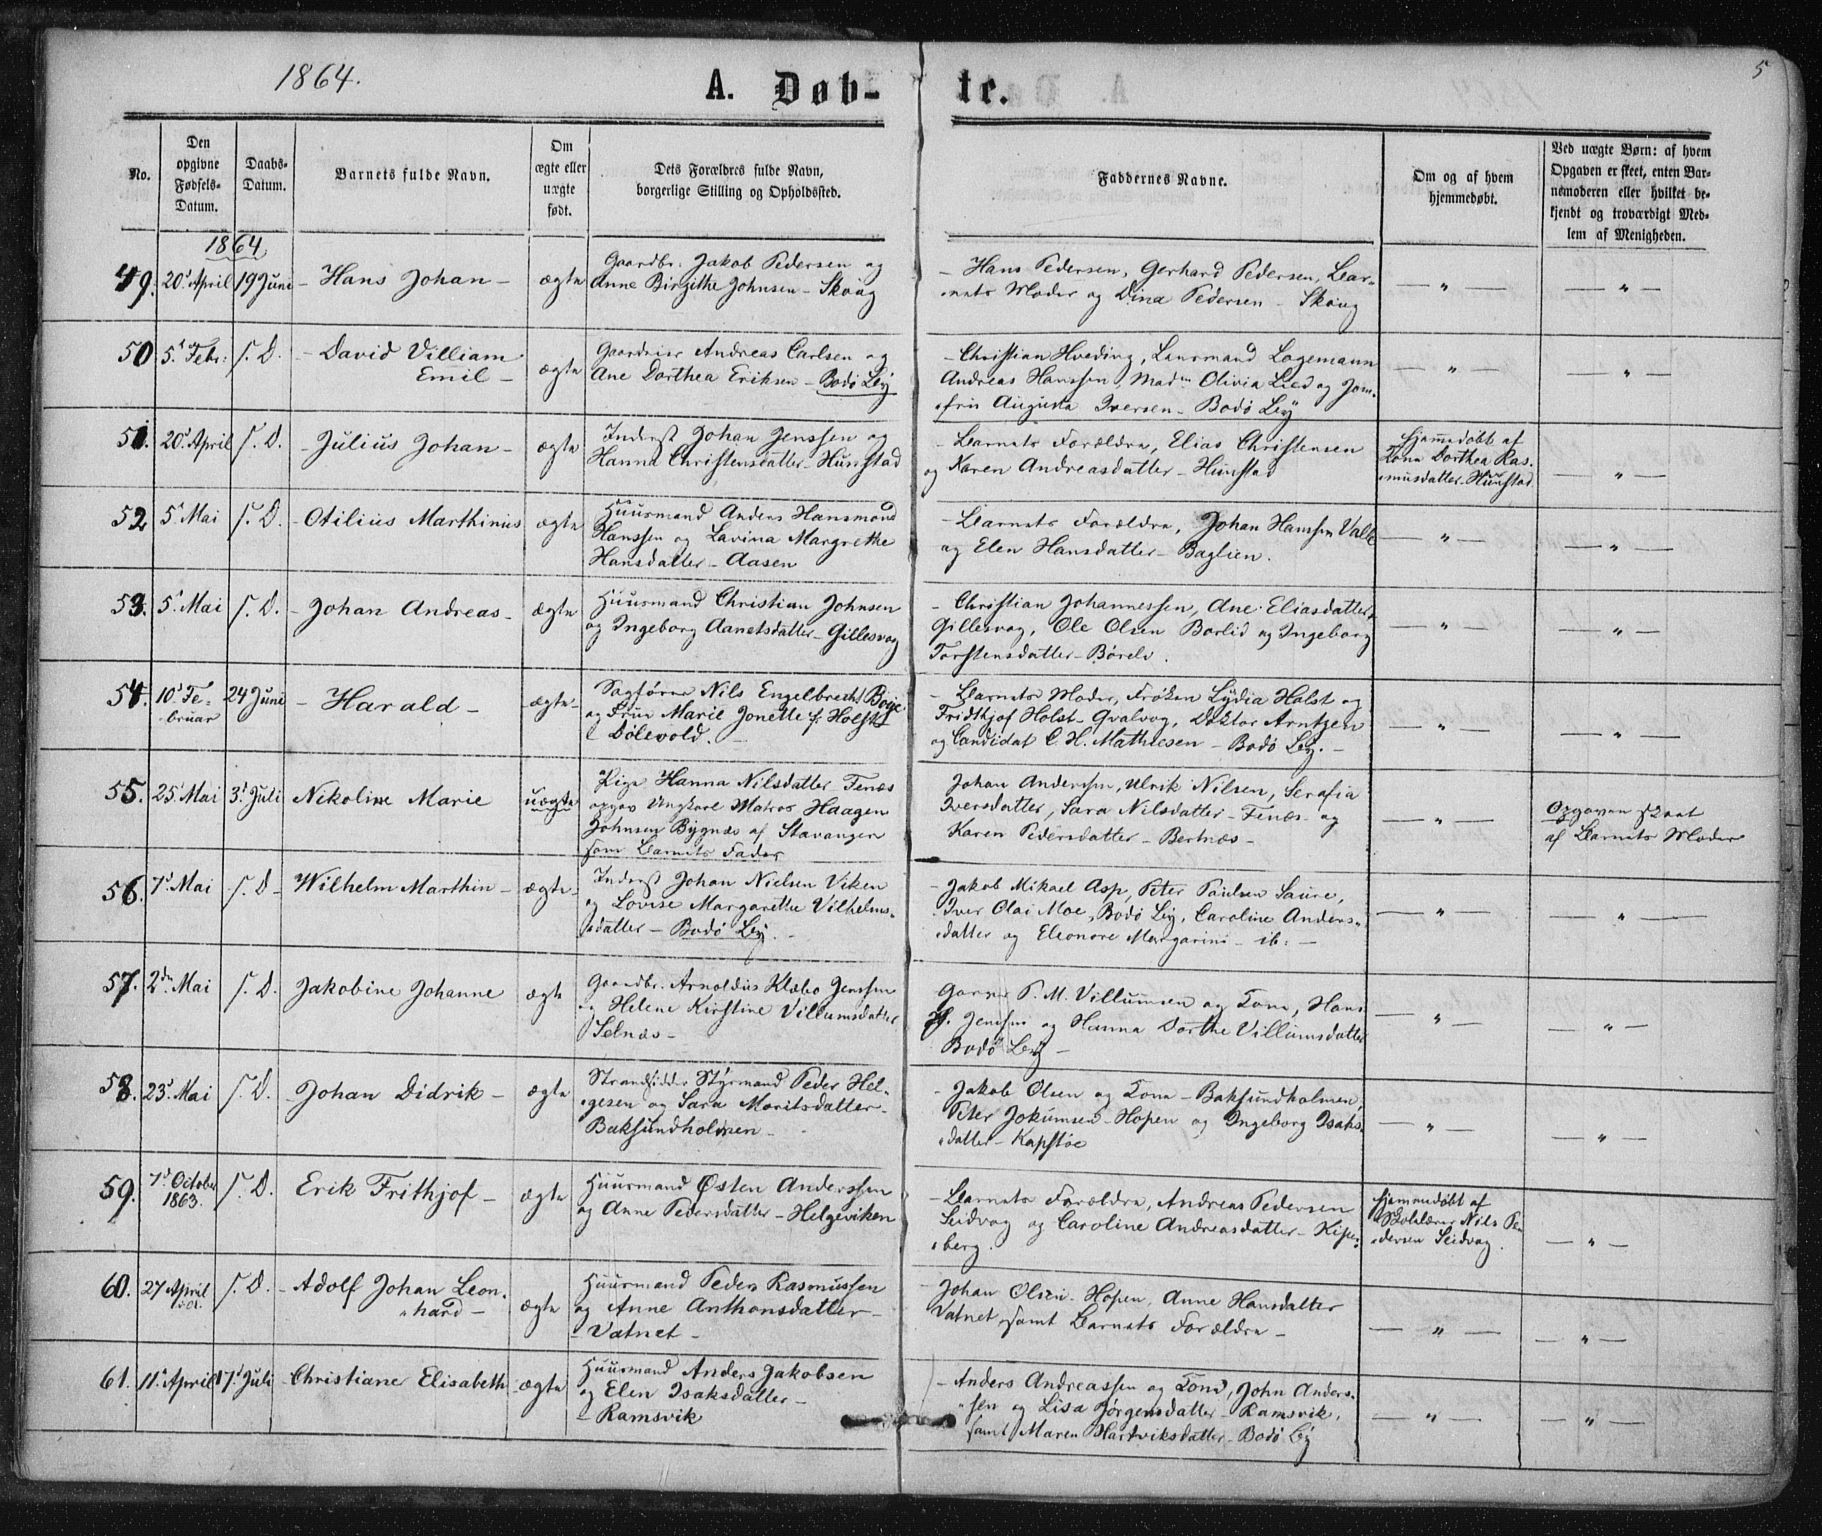 1864.
A. Døb-te.
5
No.
Den opgivne Fødsels-Datum.
Daabs-Datum.
Barnets fulde Navn.
Om ægte eller uægte født.
Dets Forældres fulde Navn, borgerlige Stilling og Opholdssted.
Faddernes Navne.
Om og af hvem hjemmedøbt.
Ved uægte Børn: af hvem Opgaven er skeet, enten Barnemoderen eller hvilket bekjendt og troværdigt Medlem af Menigheden.
1864
49. 20 April 19 Juni - Hans Johan - ægte
Gaardbr. Jakob Pedersen og
Anne Birgithe Johnsen - Skoug
- Hans Pedersen, Gerhard Pedersen, Bar-
nets Moder og Dina Pedersen - Skoug
— " — — " —
50 5 Febr: s. D. - David Villiam
Emil - ægte
Andreas Carlsen og
Ane Dorthea Eriksen - Bodø By
- Christian Hveding, Lensmand Lagemann
Andreas Hanssen, Madm Olivia Lied og Jom-
fru Augusta Iversen - Bodø By
— " — — " —
51. 20 April s. D. - Julius Johan - ægte
Inderst Johan Jenssen og
Hanna Christensdatter - Hunstad
- Barnets Forældre, Elias Christensen
og Karen Andreasdatter - Hunstad
hjemmedøbt af
Kona Dorthea Ras-
musdatter Hunstad
— " —
52 5 Mai s. D. - Otilius Marthinius ægte
Huusmand Anders Hansmond
Hanssen og Lavina Margrethe
Hansdatter - Aasen
- Barnets Forældre, Johan Hanssen Valle
og Elen Hansdatter - Baglien.
— " — — " —
53. 5 Mai s. D. - Johan Andreas - ægte
Huusmand Christian Johnsen
og Ingeborg Aanetsdatter - Gillesvog
- Christian Johannessen, Ane Eliasdatter
Gillesvog, Ole Olsen Borlid og Ingeborg
Torstensdatter - Børelv.
— " — — " —
54. 10 Fe-
bruar 24 Juni - Harald - ægte -
Sagfører Nils Engelbrecht Boye
og Frue Marie Jonette f. Holst
Dølevold. -
- Barnets Moder, Frøken Lydia Holst og
Fridthjof Holst - Qvalvog, Doktor Arntzen
og Candidat C. H. Mathiesen - Bodø By. -
— " — — " —
55. 25 Mai 3 Juli Nikoline Marie uægte
Pige Hanna Nilsdatter Fenæs
opgav Ungkarl Matros Haagen
Johnsen Bygnæs af Stavanger
som Barnets Fader
Johan Anderssen, Ulrik Nilsen, Serafia
Iversdatter, Sara Nilsdatter - Fenæs og
Karen Pedersdatter - Bertnæs -
— " —
Opgaven skeet
af Barnets Moder
56. 7 Mai s. D - Wilhelm Marthin - ægte -
Inderst Johan Nielsen Viken
og Lovise Margarethe Vilhelms-
datter - Bodø By. -
- Jakob Mikael Asp, Peter Paulsen Saure,
Iver Olai Moe, Bodø By, Caroline Anders-
datter og Eleonore Margarini - ib: -
— " — — " —
57. 2den Mai s. D. Jakobine Johanne ægte
Gaardbr. Arnoldus Klæbo Jenssen
og Helene Kirstine Villumsdatter
Selnæs -
P. M. Villumsen og Kona, Hans
Jenssen og Hanna Dorthe Villumsdatter
Bodø By -
— " — — " —
58. 23 Mai s. D. - Johan Didrik - ægte
Strandsidder Styrmand Peder Hel-
gesen og Sara Moritsdatter -
Baksundholmen -
- Jakob Olsen og Kona - Baksundholmen,
Peter Jokumsen - Hopen og Ingeborg Isaks-
datter - Kapstøe
— " — — " —
59. 7 October
1863. s. D. Erik Frithjof - ægte
Huusmand Østen Anderssen
og Anne Pedersdatter - Helgeviken
- Barnets Forældre, Andreas Pedersen
Seidvag og Caroline Andreasdatter - Kipe-
berg.
hjemmedøbt af
Skolelærer Nils Pe-
dersen Seidvag.
— " —
60. 27 April s. D. - Adolf Johan Leon-
hard - ægte
Huusmand Peder Rasmussen
og Anne Anthonsdatter -
- Vatnet -
Johan Olsen - Hopen, Anne Hansdatter
Vatnet, samt Barnets Forældre -
— " — — " —
61. 11 April 17 Juli - Christiane Elisabeth - ægte
Huusmand Anders Jakobsen
og Elen Isaksdatter -
- Ramsvik
- Anders Andreassen og Kona, John Anders-
sen og Lisa Jørgensdatter - Ramsvik,
samt Maren Hartviksdatter - Bodø By
— " — — " —